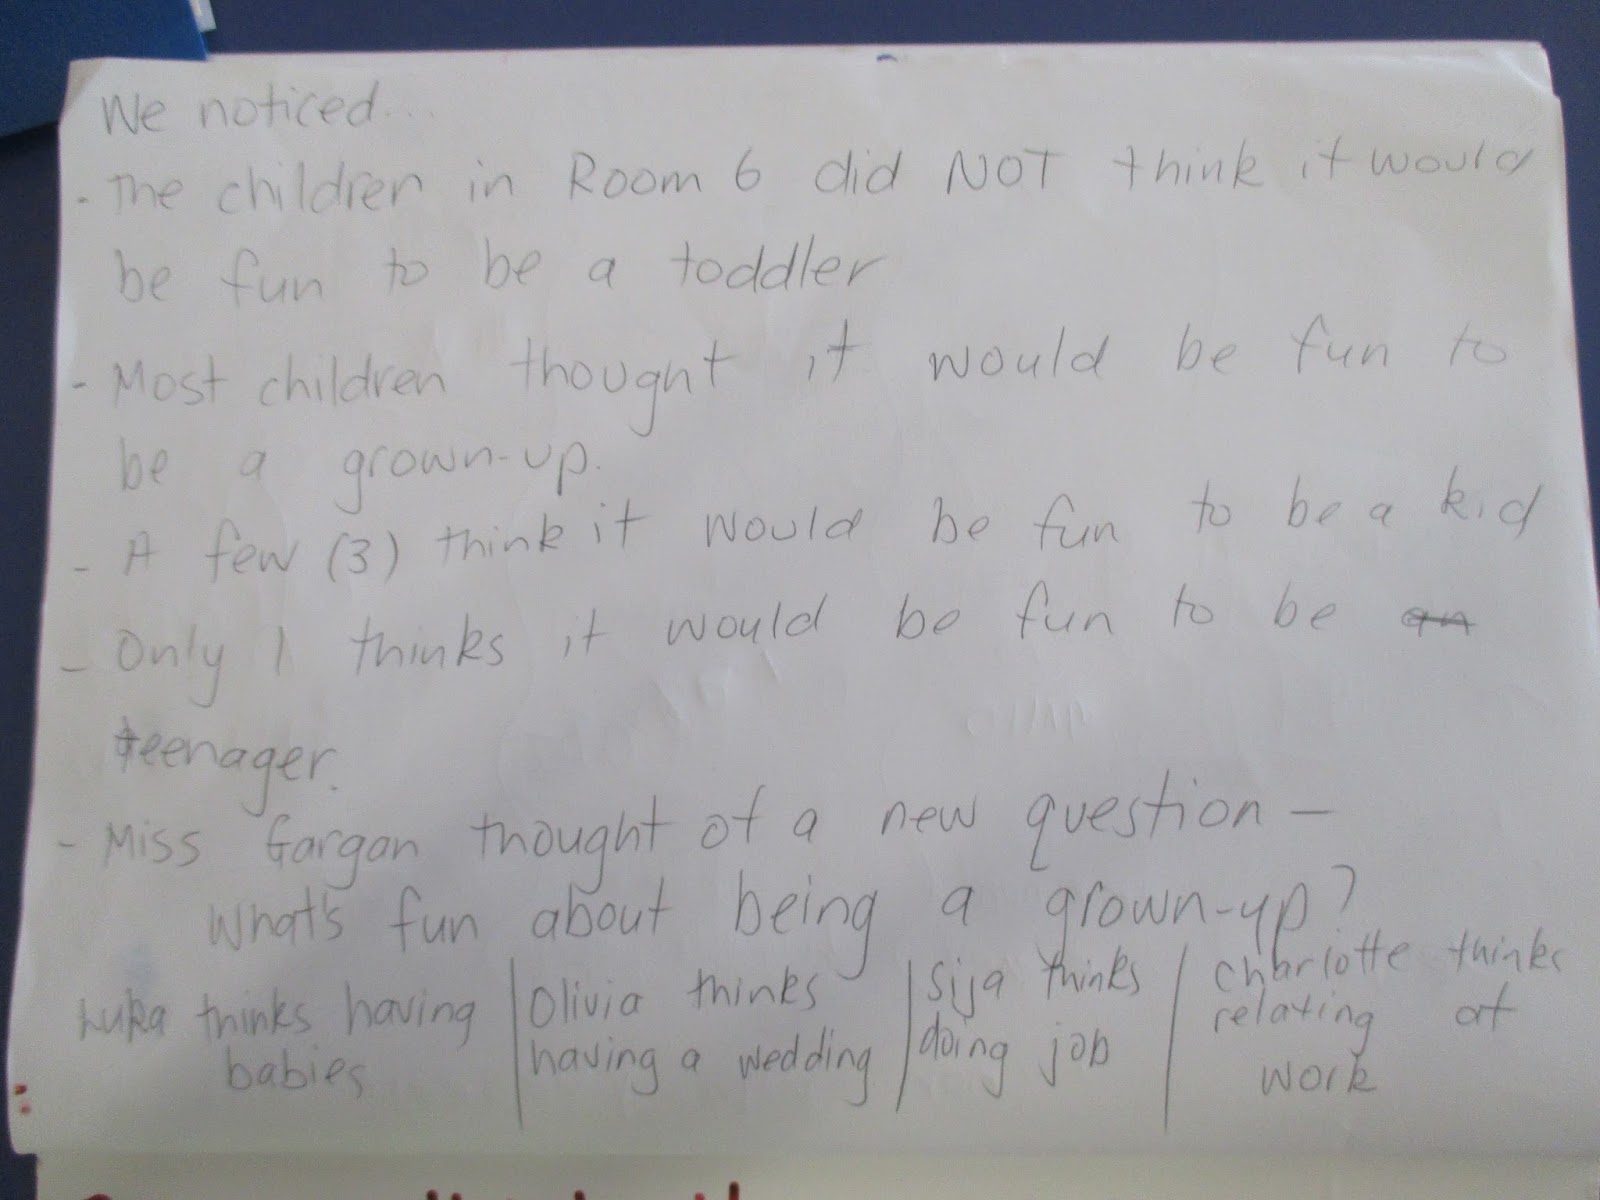 We noticed...
- The children in Room 6 did NOT think it would
be fun to be a toddler
- Most children thought it would be fun to
be a grown-up.
- A few (3) think it would be fun to be a kid
- Only 1 thinks it would be fun to be an
teenager.
- Miss Gargan thought of a new question -
What's fun about being a grown-up?
Luka thinks having
babies
Olivia thinks
having a wedding
Sija thinks
doing job
Charlotte thinks
relating at
work